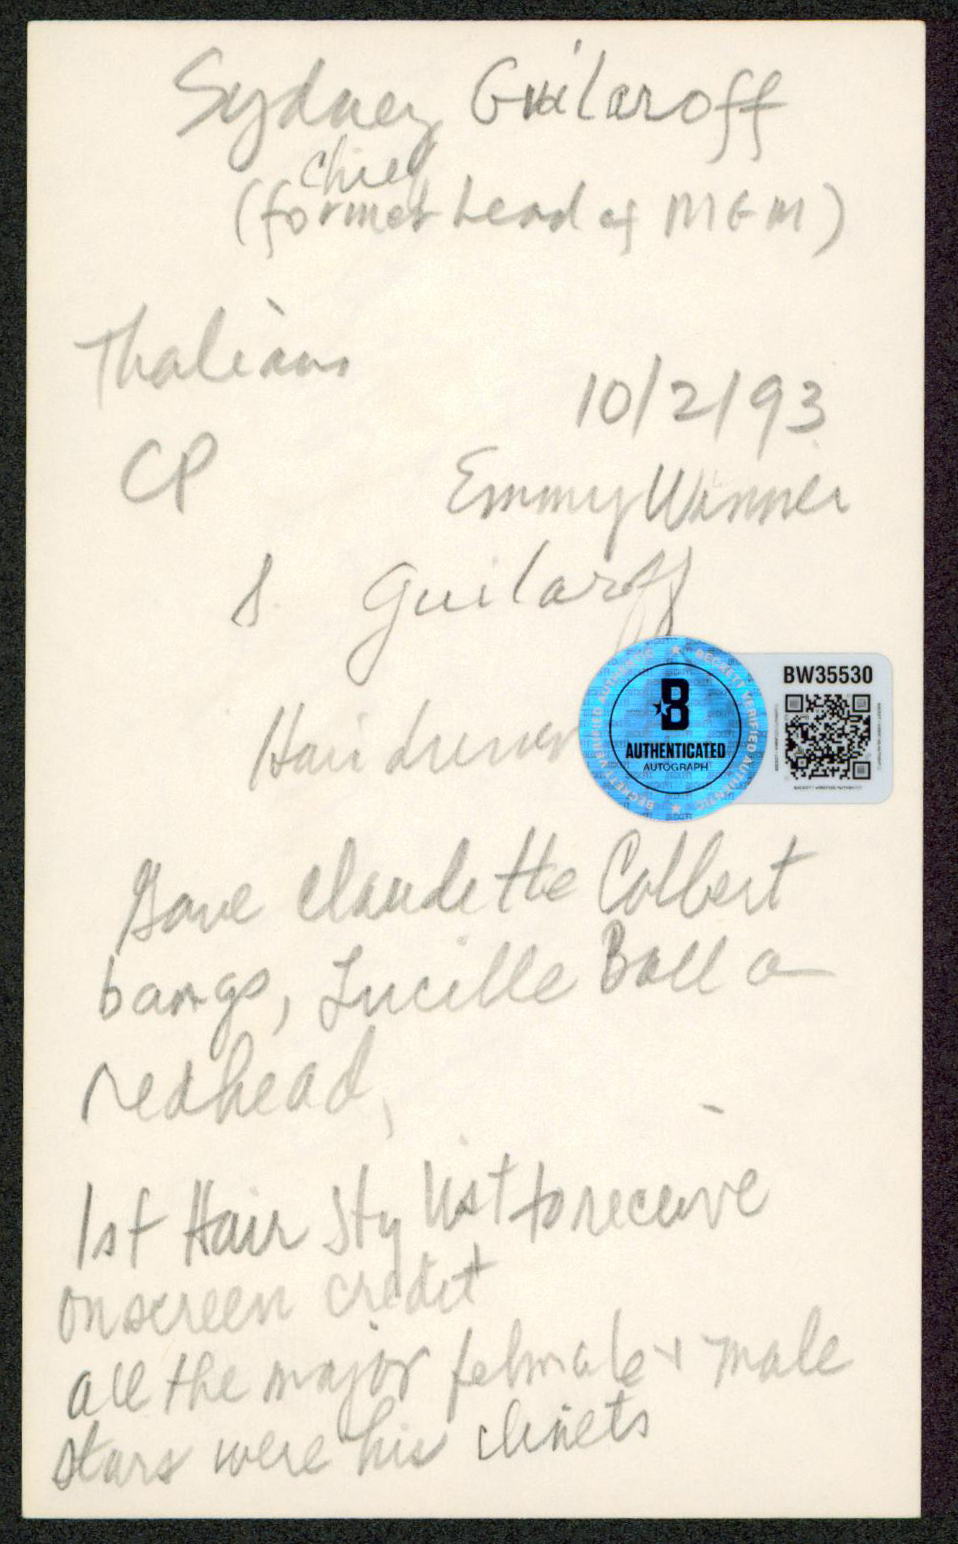 Sydney Guilaroff
chief
(former head of MGM)
Thalians
10/2/93
CP
Emmy Winner
S Guilaroff
BW35530
BECKETT VERIFIED AUTHENTIC
B
AUTHENTICATED
AUTOGRAPH
Hairdresser
Gave Claudette Colbert
bangs, Lucille Ball a
redhead,
1st Hair Stylist to receive
onscreen credit
all the major felmale + male
stars were his clinets